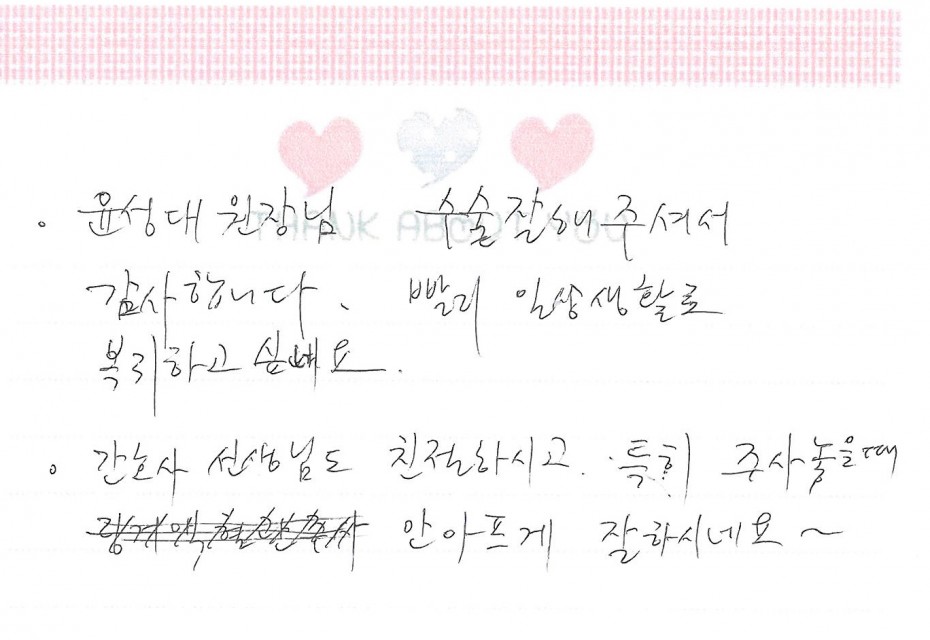 THANK ABOUT YOU
· 윤성대 원장님 수술잘해주셔서
감사합니다. 빨리 일상생활로
복귀하고 싶네요.
· 간호사 선생님도 친절하시고. 특히 주사놓을때
안아프게 잘하시네요~